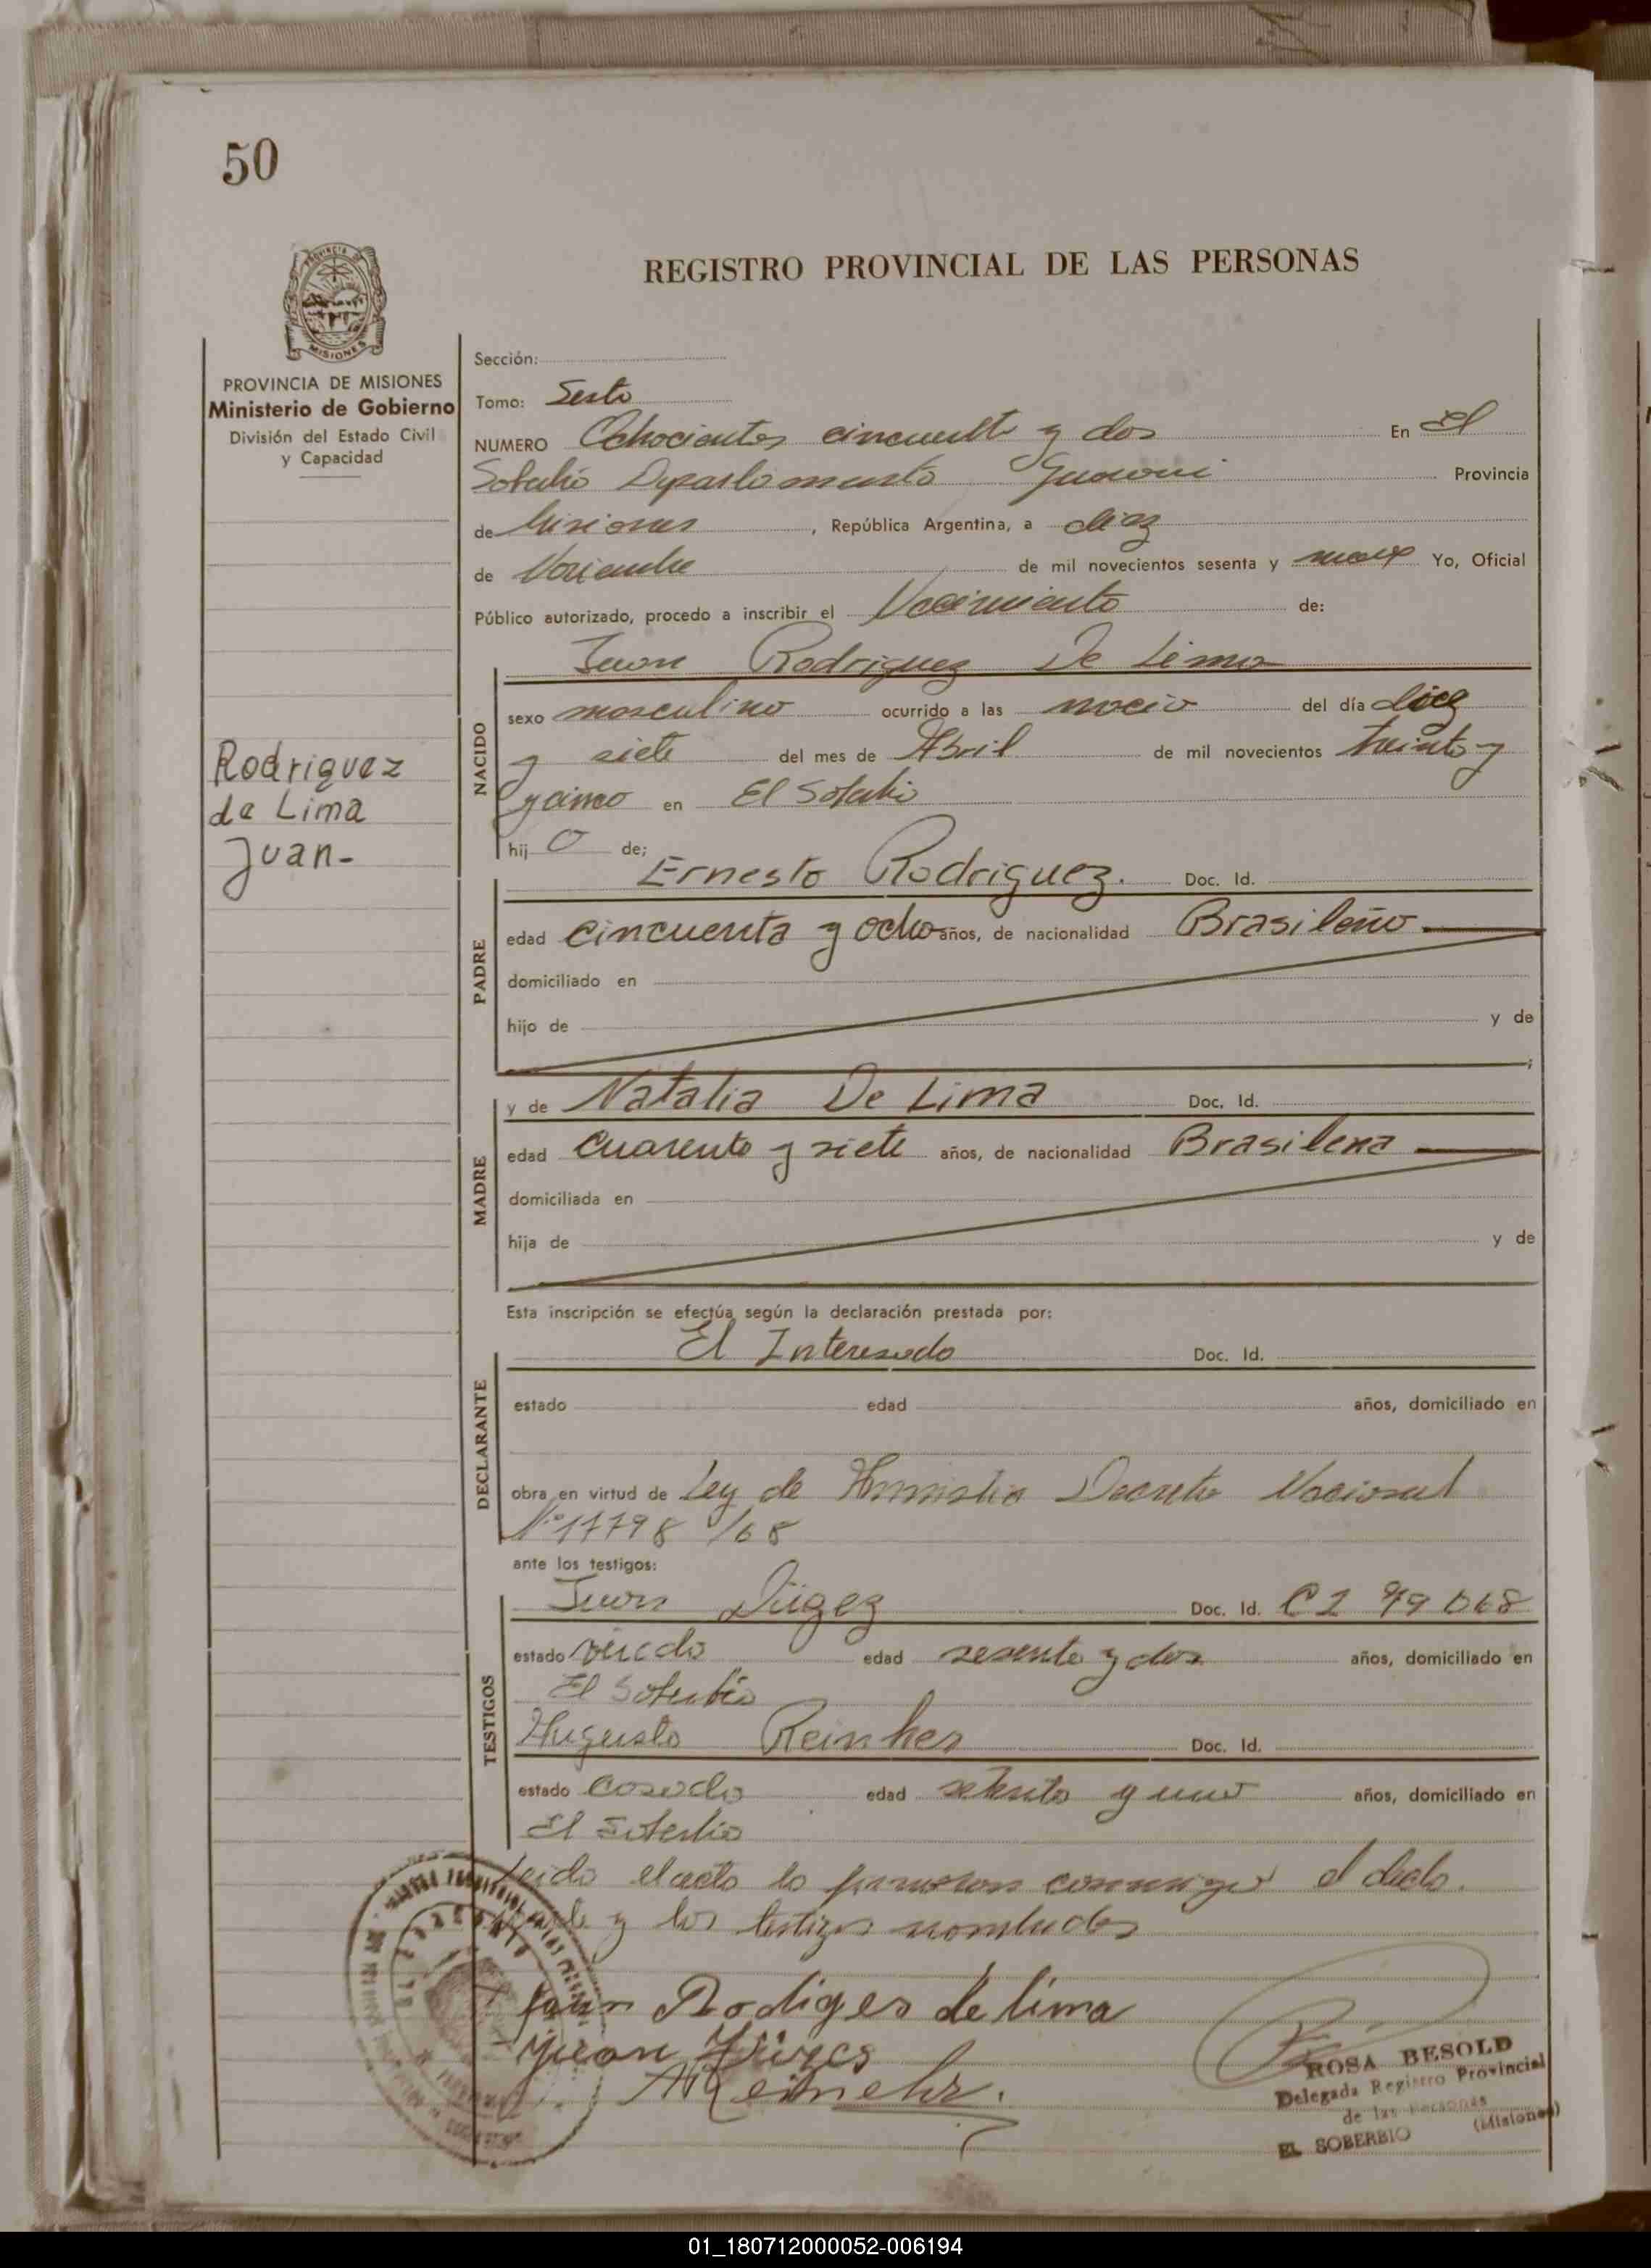 50
REGISTRO PROVINCIAL DE LAS PERSONAS
MISIONES
PROVINCIA DE MISIONES
Ministerio de Gobierno
División del Estado Civil
y Capacidad
Rodriguez
de Lima
Juan-
Sección:
Tomo: Sesto
NUMERO Ochocientos cincuenta y dos En El
Soberbio Departamento Guarani Provincia
de Misiones, República Argentina, a diez
de Noviembre de mil novecientos sesenta y nueve Yo, Oficial
Público autorizado, procedo a inscribir el Nacimiento de:
Juan Rodriguez De Lima
NACIDO
sexo masculino ocurrido a las nació del día diez
y siete del mes de Abril de mil novecientos treinta y
y cinco en El Soberbio
hij o de;
Ernesto Rodriguez. Doc. Id.
PADRE
edad cincuenta y ocho años, de nacionalidad Brasileño
domiciliado en
hijo de y de
;
y de Natalia De Lima Doc. Id.
MADRE
edad cuarenta y siete años, de nacionalidad Brasilena
domiciliada en
hija de y de
Esta inscripción se efectúa según la declaración prestada por:
El Interesado Doc. Id.
DECLARANTE
estado edad años, domiciliado en
obra en virtud de Ley de Amnistia Decreto Nacional
Nº 17798/68
ante los testigos:
Juan Doc. Id.
TESTIGOS
estado viudo edad sesenta y dos años, domiciliado en
El Soberbio
Augusto Doc. Id.
estado casado edad setenta y uno años, domiciliado en
El Soberbio
Leido el acta la firmaron conmigo el decla.
rante y los testigos nombrados
Juan Rodiges de lima
Juan
ROSA BESOLD
Delegada Registro Provincial
de las Personas
EL SOBERBIO (Misiones)
01_180712000052-006194